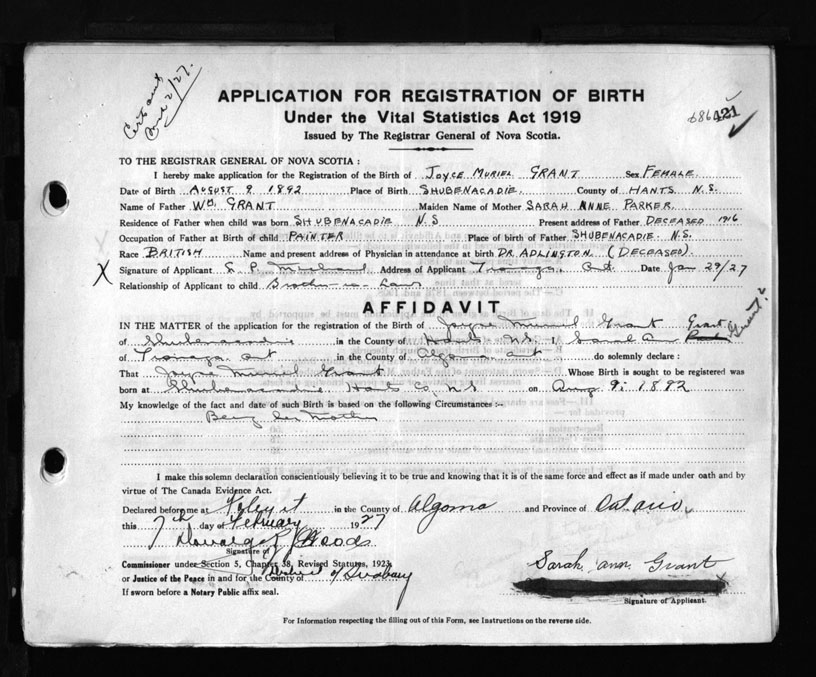 Cert sent
2/27.
APPLICATION FOR REGISTRATION OF BIRTH
Under the Vital Statistics Act 1919
Issued by The Registrar General of Nova Scotia.
686421
TO THE REGISTRAR GENERAL OF NOVA SCOTIA :
I hereby make application for the Registration of the Birth of JOYCE MURIEL GRANT Sex FEMALE
Date of Birth AUGUST 9 1892 Place of Birth SHUBENACADIE. County of HANTS N.S.
Name of Father WM. GRANT Maiden Name of Mother SARAH ANNE PARKER.
Residence of Father when child was born SHUBENACADIE N.S Present address of Father DECEASED 1916
Occupation of Father at Birth of child PAINTER Place of birth of Father SHUBENACADIE. N.S.
Race BRITISH Name and present address of Physician in attendance at birth DR. ADLINGTON. (DECEASED).
X Signature of Applicant Address of Applicant Ont. Date Jan 29/27
Relationship of Applicant to child Brother in Law
AFFIDAVIT
IN THE MATTER of the application for the registration of the Birth of Joyce Muriel Grant Grant Grant?
of Shubenacadie in the County of Hants N.S. I, Sarah Ann
of Ont in the County of Algoma Ont do solemnly declare :
That Joyce Muriel Grant Whose Birth is sought to be registered was
born at Shubenacadie Hants Co, N.S. on Aug 9, 1892
My knowledge of the fact and date of such Birth is based on the following Circumstances :–
Being her Mother
I make this solemn declaration conscientiously believing it to be true and knowing that it is of the same force and effect as if made under oath and by
virtue of The Canada Evidence Act.
Declared before me at Foleyet in the County of Algoma and Province of Ontario
this 7th day of February 1927
Signature of
Commissioner under Section 5, Chapter 38, Revised Statutes, 1923,
or Justice of the Peace in and for the County of District of Sudbury
If sworn before a Notary Public affix seal.
Sarah ann Grant
Signature of Applicant.
For Information respecting the filling out of this Form, see Instructions on the reverse side.